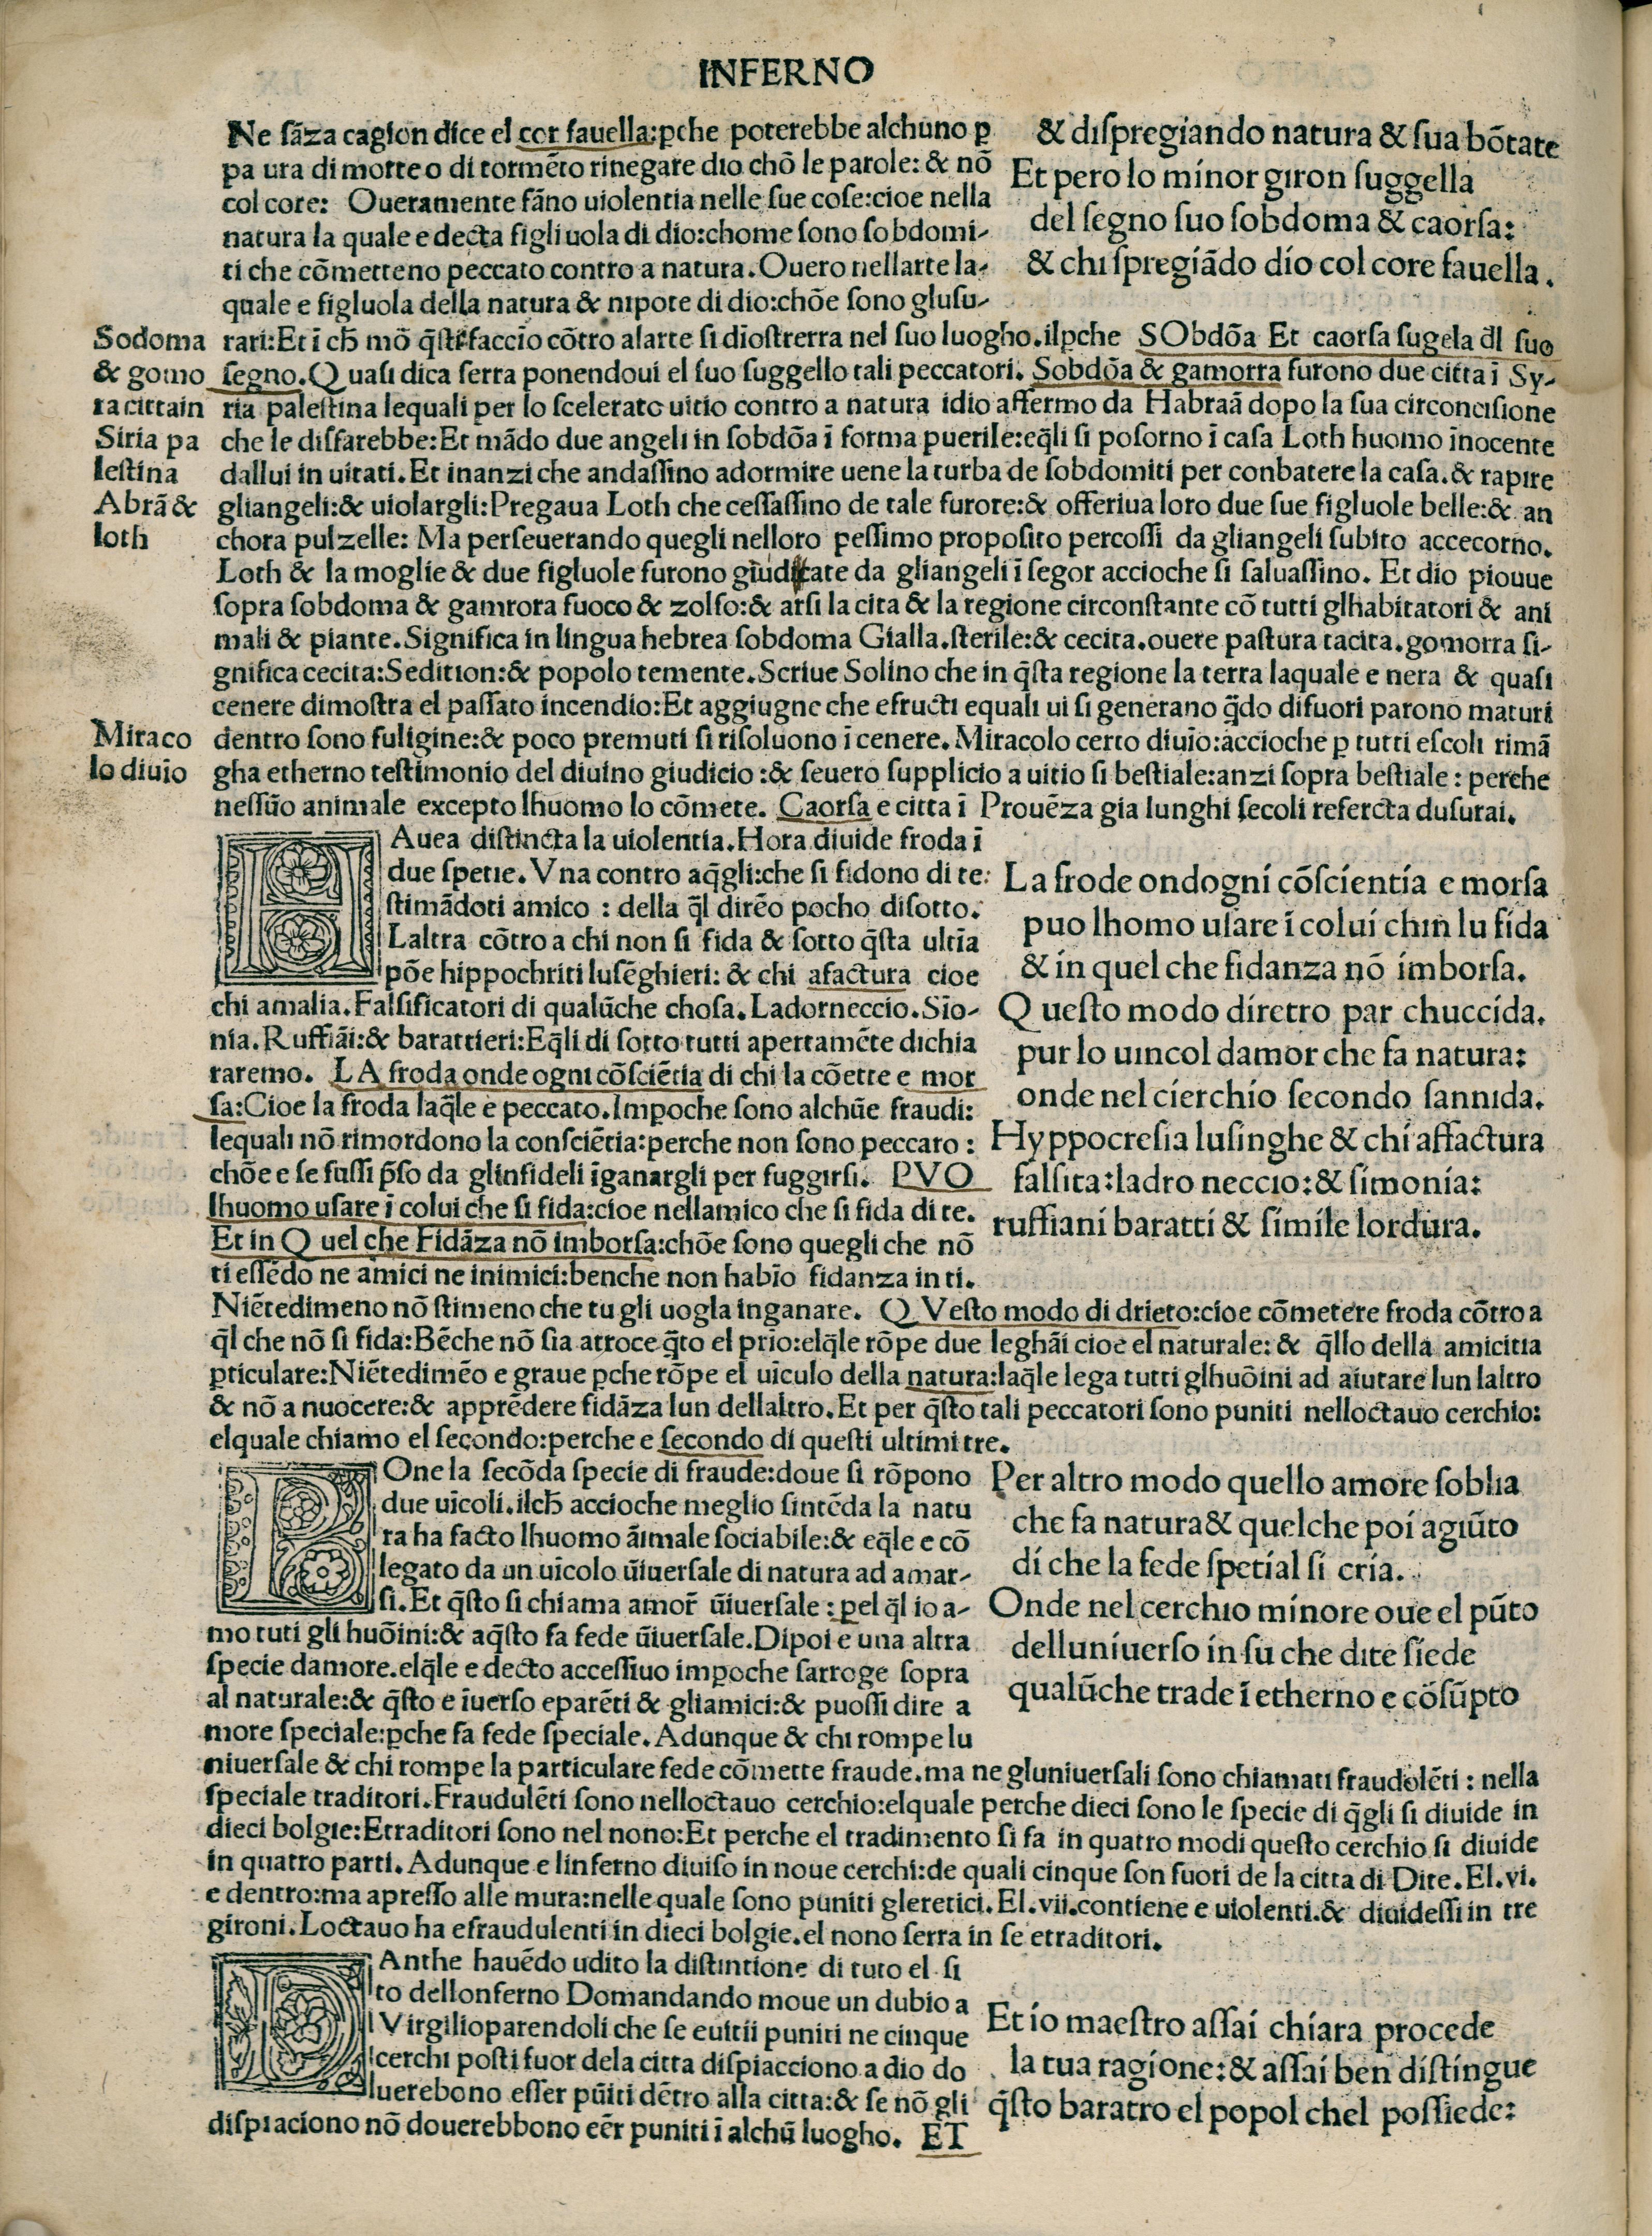 INFERNO
Ne sãza cagion dice el cor fauella:ꝑche poterebbe alchuno ꝑ
pa ura di morte o di tormẽto rinegare dio chõ le parole: & nõ
col core: Oueramente fãno uiolentia nelle sue cose:cioe nella
natura la quale e decta figli uola di dio:chome sono sobdomi-
ti che cõmetteno peccato contro a natura.Ouero nellarte la-
quale e figluola della natura & nipote di dio:chõe sono glusu-
& dispregiando natura & sua bõtate
Et pero lo minor giron suggella
del segno suo sobdoma & caorsa:
& chi spregiãdo dio col core fauella.
Sodoma
& gomo
ra cittain
Siria pa
lestina
Abrã &
loth
rari:Et ĩ cħ mõ q̃sti faccio cõtro alarte si dĩostrerra nel suo luogho.ilꝑche SObdõa Et caorsa sugela d̃l suo
segno.Quasi dica serra ponendoui el suo suggello tali peccatori. Sobdõa & gamorra furono due citta ĩ Sy-
ria palestina lequali per lo scelerato uitio contro a natura idio affermo da Habraã dopo la sua circoncisione
che le disfarebbe:Et mãdo due angeli in sobdõa ĩ forma puerile:eq̃li si posorno ĩ casa Loth huomo ĩnocente
dallui in uitati.Et inanzi che andassino adormire uene la turba de sobdomiti per conbatere la casa.& rapire
gliangeli:& uiolargli:Pregaua Loth che cessassino de tale furore:& offeriua loro due sue figluole belle:& an
chora pulzelle: Ma perseuerando quegli nelloro pessimo proposito percossi da gliangeli subito accecorno.
Loth & la moglie & due figluole furono giuditate da gliangeli ĩ segor accioche si saluassino. Et dio piouue
sopra sobdoma & gamrora fuoco & zolfo:& arsi la cita & la regione circonstante cõ tutti glhabitatori & ani
mali & piante.Significa in lingua hebrea sobdoma Gialla.sterile:& cecita.ouere pastura tacita.gomorra si-
gnifica cecita:Sedition:& popolo temente.Scriue Solino che in q̃sta regione la terra laquale e nera & quasi
cenere dimostra el passato incendio:Et aggiugne che efructi equali ui si generano q̃do difuori parono maturi
Miraco
lo diuĩo
dentro sono fuligine:& poco premuti si risoluono ĩ cenere.Miracolo certo diuĩo:accioche ꝑ tutti escoli rimã
gha etherno testimonio del diuino giudicio :& seuero supplicio a uitio si bestiale:anzi sopra bestiale : perche
nessũo animale excepto lhuomo lo cõmete. Caorsa e citta ĩ Prouẽza gia lunghi secoli referta dusurai.
HAuea distincta la uiolentia.Hora diuide froda ĩ
due spetie. Vna contro aq̃gli:che si fidono di te:
stimãdoti amico : della q̃l direo pocho disotto.
Laltra cõtro a chi non si fida & sotto q̃sta ultĩa
põe hippochriti lusẽghieri: & chi afactura cioe
chi amalia.Falsificatori di qualũche chosa.Ladorneccio.Sĩo-
nia.Ruffiãi:& barattieri:Eq̃li di sotto tutti apertamẽte dichia
raremo. LA froda onde ogni cõsciẽtia di chi la cõette e mor
sa:Cioe la froda laq̃le e peccato.Imꝑoche sono alchũe fraudi:
lequali nõ rimordono la consciẽtia:perche non sono peccato :
chõe e se fussi p̃so da glinfideli ĩganargli per fuggirsi. PVO
lhuomo usare ĩ colui che si fida:cioe nellamico che si fida di te.
Et in Quel che Fidãza nõ imborsa:chõe sono quegli che nõ
ti essẽdo ne amici ne inimici:benche non habĩo fidanza in ti.
La frode ondogni cõscientia e morsa
puo lhomo usare ĩ colui chin lu fida
& in quel che fidanza nõ imborsa.
Questo modo diretro par chuccida.
pur lo uincol damor che fa natura:
onde nel cierchio secondo sannida.
Hyppocresia lusinghe & chi affactura
falsita:ladro neccio:& simonia:
ruffiani baratti & simile lordura.
Niẽtedimeno nõ stimeno che tu gli uogla inganare. QVesto modo di drieto:cioe cõmetere froda cõtro a
q̃l che nõ si fida:Bẽche nõ sia atroce q̃to el prio:elq̃le rõpe due leghãi cioe el naturale: & q̃llo della amicitia
ꝑticulare:Niẽtedimẽo e graue ꝑche rõpe el uĩculo della natura:laq̃le lega tutti glhuõini ad aiutare lun laltro
& nõ a nuocere:& apprẽdere fidãza lun dellaltro.Et per q̃sto tali peccatori sono puniti nelloctauo cerchio:
elquale chiamo el secondo:perche e secondo di questi ultimi tre.
POne la secõda specie di fraude:doue si rõpono
due uĩcoli.ilcħ accioche meglio sintẽda la natu
ra ha facto lhuomo ãimale sociabile:& eq̃le e cõ
legato da un uĩcolo ũiuersale di natura ad amar-
si.Et q̃sto si chiama amor̃ ũiuersale : ꝑel q̃l io a-
mo tuti gli huõini:& aq̃sto fa fede ũiuersale.Dipoi e una altra
specie damore.elq̃le e decto accessiuo imꝑoche sarroge sopra
al naturale:& q̃sto e ĩuerso eparẽti & gliamici:& puossi dire a
more speciale:ꝑche fa fede speciale.Adunque & chi rompe lu
Per altro modo quello amore soblia
che fa natura & quelche poi agiũto
di che la fede spetial si cria.
Onde nel cerchio minore oue el pũto
delluniuerso in su che dite siede
qualũche trade ĩ etherno e cõsũpto
niuersale & chi rompe la particulare fede cõmette fraude.ma ne gluniuersali sono chiamati fraudolẽti : nella
speciale traditori.Fraudulẽti sono nelloctauo cerchio:elquale perche dieci sono le specie di q̃gli si diuide in
dieci bolgie:Etraditori sono nel nono:Et perche el tradimento si fa in quatro modi questo cerchio si diuide
in quatro parti.Adunque e linferno diuiso in noue cerchi:de quali cinque son fuori de la citta di Dite.El.vi.
e dentro:ma apresso alle mura:nelle quale sono puniti gleretici.El.vii.contiene e uiolenti.& diuidessi in tre
gironi.Loctauo ha efraudulenti in dieci bolgie.el nono serra in se etraditori.
DAnthe hauẽdo udito la distintione di tuto el si
to dellonferno Domandando moue un dubio a
Virgilioparendoli che se euitii puniti ne cinque
cerchi posti fuor dela citta dispiacciono a dio do
uerebono esser pũiti dẽtro alla citta:& se nõ gli
dispiaciono nõ douerebbono eẽr puniti ĩ alchũ luogho. ET
Et io maestro assai chiara procede
la tua ragione:& assai ben distingue
q̃sto baratro el popol chel possiede: